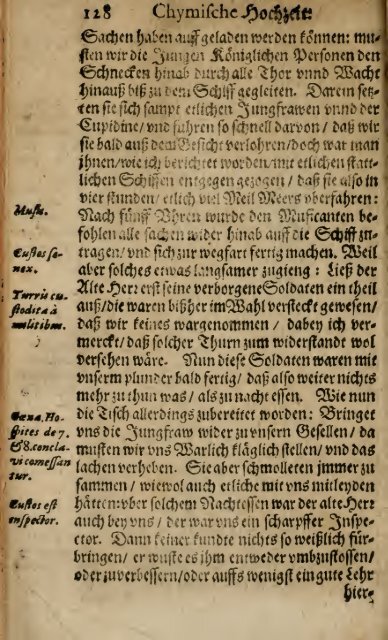 128 Chymische Hochzeit:
Sachen haben auff geladen werden können: mu-
sten wir die Jungen Königlichen Personen den
Schnecken hinab durch alle Thor vnnd Wacht
hinauß biß zu dem Schiff gegleiten. Darein setz-
ten sie sich sampt etlichen Jungfrawen vnnd der
Cupidine/ vnd fuhren so schnell darvon/ daß wir
sie bald auß dem Gesicht verlohren/ doch war man
jhnen/ wie ich berichtet worden/ mit etlichen statt-
lichen Schiffen entgegen gezogen/ daß sie also in
vier stunden/ etlich viel Meil Meers vberfahren:
Nach fünff Vhren wurde den Musicanten be-
fohlen alle sachen wider hinab auff die Schiff zu-
tragen/ vnd sich zur wegfart fertig machen. Weil
aber solches etwas langsamer zugieng: Ließ der
Alte Herr erst seine verborgene Soldaten ein theil
auß/ die waren bißher im Wahl versteckt gewesen/
daß wir keines wargenommen/ dabey ich ver-
merckt/ daß solcher Thurn zum widerstandt wol
versehen wäre. Nun diese Soldaten waren mit
vnserm plunder bald fertig/ daß also weiter nichts
mehr zu thun was/ als zu nacht essen. Wie nun
die Tisch allerdings zubereitet worden: Bringet
vns die Jungfraw wider zu vnsern Gesellen/ da
musten wir vns Warlich kläglich stellen/ vnd das
lachen verheben. Sie aber schmolleten jmmer zu
sammen/ wiewol auch etliche mit vns mitleyden
hätten: vber solchem Nachtessen war der alte Herr
auch bey vns/ der war vns ein scharpffer Inspe-
ctor. Dann keiner kundte nichts so weißlich für-
bringen/ er wuste es ihm entweder vmbzustossen/
oder zu verbessern/ oder auffs wenigst ein gute Lehr
hier-
Musi.
Custos se-
nex.
Turris cu-
stodita à
militibus.
Cœna, Ho-
spites de 7.
& 8. concla-
vi comessan
tur.
Custos est
inspector.